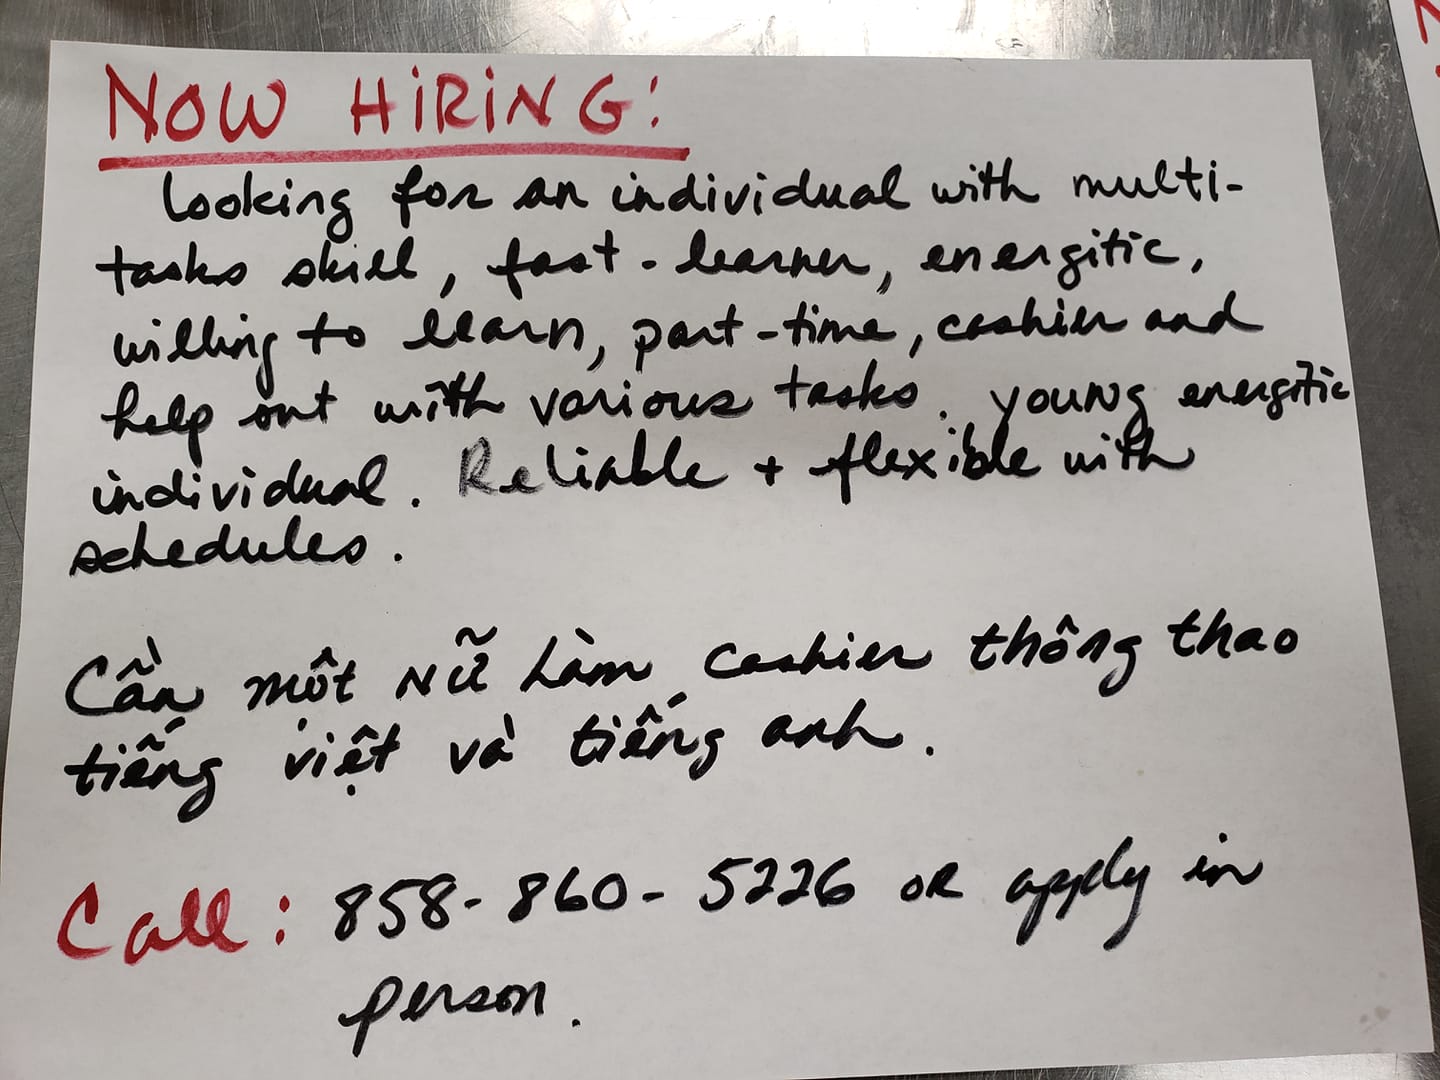 NOW HIRING:
Looking for an individual with multi-
tasks skill, fast-learner, energitic,
willing to learn, part-time, cashier and
help out with various tasks. young energitic
individual. Reliable + flexible with
schedules.
Cần một nữ làm cashier thông thạo
tiếng việt và tiếng anh.
Call: 858-860-5226 OR apply in
person.